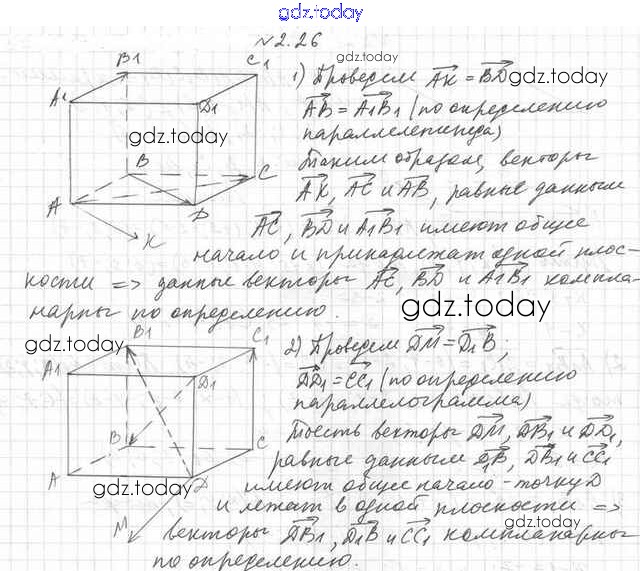 gdz.today
№2.26
B1 C1 A1 D1 B C A D K
gdz.today
1) Проведем AK = BD gdz.today
AB = A1B1 (по определению
параллелепипеда)
Таким образом, векторы
gdz.today
AK, AC и AB, равные данным
AC, BD и A1B1 имеют общее
начало и принадлежат одной плос-
кости => данные векторы AC, BD и A1B1 компла-
нарны по определению.
gdz.today
B1 C1 A1 D1 B C A D M
gdz.today
gdz.today
2) Проведем DM = D1B;
DD1 = CC1 (по определению
параллелограмма)
gdz.today
Тоесть векторы DM, DB1 и DD1,
равные данным D1B, DB1 и CC1
имеют общее начало - точку D
и лежат в одной плоскости =>
gdz.today
векторы DB1, D1B и CC1 компланарны
по определению.